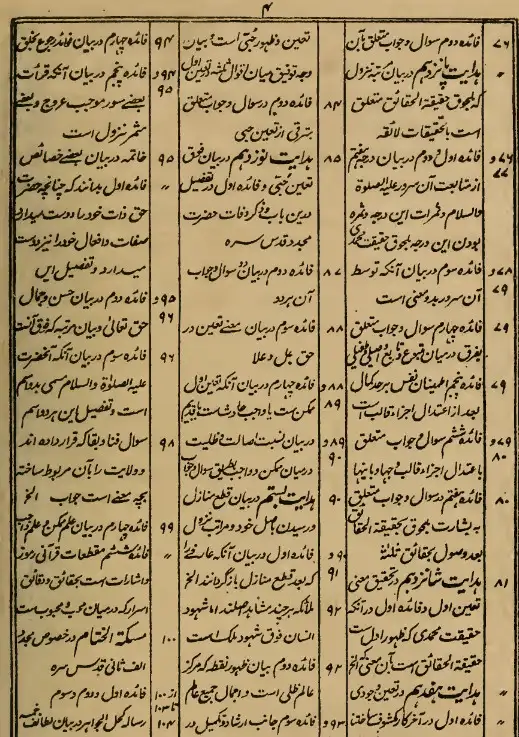 ۴
۷۶ فائده دوم سوال و جواب متعلق بآن
〃 هدایت پانزدهم در بیان مرتبه نزول
که لحوق حقیقة الحقائق متعلق
است با تحقیقات لائقه
۷۶ و ۷۷ فائده اول و دوم در بیان درجه هفتم
از متابعت آن سرور علیه الصلوة
والسلام و ثمرات این درجه و ثمره
بودن این درجه لحوق حقیقت محمدی
۷۸ و ۷۹ فائده سوم در بیان آنکه توسط
آن سرور بدو معنی است
۷۹ فائده چهارم سوال و جواب متعلق
بفرق در میان متبوع و تابع و اصلی و طفیلی
۷۹ فائده پنجم اطمینان نفس بر وجه کمال
بعد از اعتدال اجزاء قالب است
۷۹ و ۸۰ فائده ششم سوال و جواب متعلق
با عتدال اجزاء قالب و جهاد با ینها
۸۰ فائده هفتم در سوال و جواب متعلق
به بشارت لحوق بحقیقة الحقائق
بعد وصول بحقائق ثلثه
۸۱ هدایت شانزدهم در تحقیق معنی
تعین اول و فائده اول در آنکه
حقیقت محمدی که ظهور اول است
حقیقة الحقائق است بآن معنی که الخ
〃 هدایت هفدهم در تعین وجودی
〃 فائده اول در آخر کار مکشوف ساختند
تعین و ظهور حبی است و بیان
وجه توفیق میان اقوال ثلثه در تعین اول
۸۴ فائده دوم در سوال و جواب متعلق
بترقی از تعین حبی
۸۵ هدایت نوزدهم در بیان فوق
تعین حبی و فائده اول در تفصیل
درین باب و ذکر وفات حضرت
مجدد قدس سره
۸۷ فائده دوم در بیان دو سوال و جواب
آن هر دو
۸۸ فائده سوم در بیان معنی تعین در
حق جل و علا
۸۸ و ۸۹ فائده چهارم در بیان آنکه تعین اول
ممکن ست یا واجب حادث است یا قدیم
۸۹ و ۹۰ در بیان نسبت اصالت و ظلیت
در میان ممکن و واجب بطریق سوال و جواب
۹۰ هدایت بستم در بیان قطع منازل
و رسیدن باصل خود و مراتب نزول
۹۰ و ۹۱ فائده اول در بیان آنکه عارف
که بعد قطع منازل باز گردانند الخ
۹۲ ملائکه هر چند مشاهد اصل اند اما شهود
انسان فوق شهود ملک است
۹۲ فائده دوم بیان ظهور نقطه که مرکز
عالم ظلی است و اجمال جمیع عالم
۹۳ و فائده سوم جانب ارشاد و تکمیل در
۹۴ فائده چهارم در بیان فوائد رجوع بخلق
۹۴ و ۹۵ فائده پنجم در بیان آنکه قرأت
بعضے سور موجب عروج و بعضے
مثمر نزول است
۹۵ خاتمه در بیان بعضے خصائص
〃 فائده اول بدانند که چنانچه حضرت
حق ذات خود را دوست میدارد
صفات و افعال خود را نیز دوست
میدارد و تفصیل این
۹۵ و ۹۶ فائده دوم در بیان حسن و جمال
حق تعالی و بیان مرتبه که فوق آنست
۹۶ فائده سوم در بیان آنکه آنحضرت
علیه الصلوة والسلام مسمی بدو اسم
است و تفصیل این هر دو اسم
۹۸ سوال فنا و بقا که قرار داده اند
و ولایت را بآن مربوط ساخته
بچه معنے است جواب الخ
۹۹ فائده چهارم در بیان علم ممکن و علم واجب
〃 فائده ششم مقطعات قرآنی رموز
و اشارات است بحقائق و دقائق
اسرار که در میان محب و محبوب است
۱۰۰ مسکة الختام در خصوص مجدد
الف ثانی قدس سره
از ۱۰۰ تا ۱۰۳ فائده اول و دوم و سوم
۱۰۴ رساله کحل الجواهر در بیان لطائف